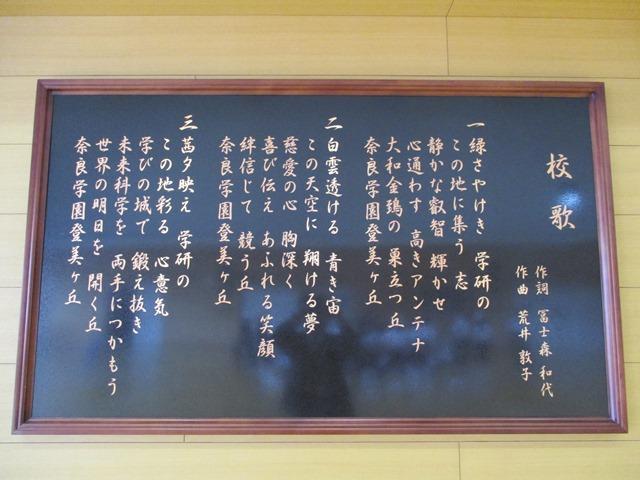 校歌
作詞 冨士森 和代
作曲 荒井 敦子
一 緑さやけき 学研の
この地に集う 志
静かな叡智 輝かせ
心通わす 高きアンテナ
大和金鵄の 巣立つ丘
奈良学園登美ヶ丘
二 白雲透ける 青き宙
この天空に 翔ける夢
慈愛の心 胸深く
喜び伝え あふれる笑顔
絆信じて 競う丘
奈良学園登美ヶ丘
三 茜夕映え 学研の
この地彩る 心意気
学びの城で 鍛え抜き
未来科学を 両手につかもう
世界の明日を 開く丘
奈良学園登美ヶ丘